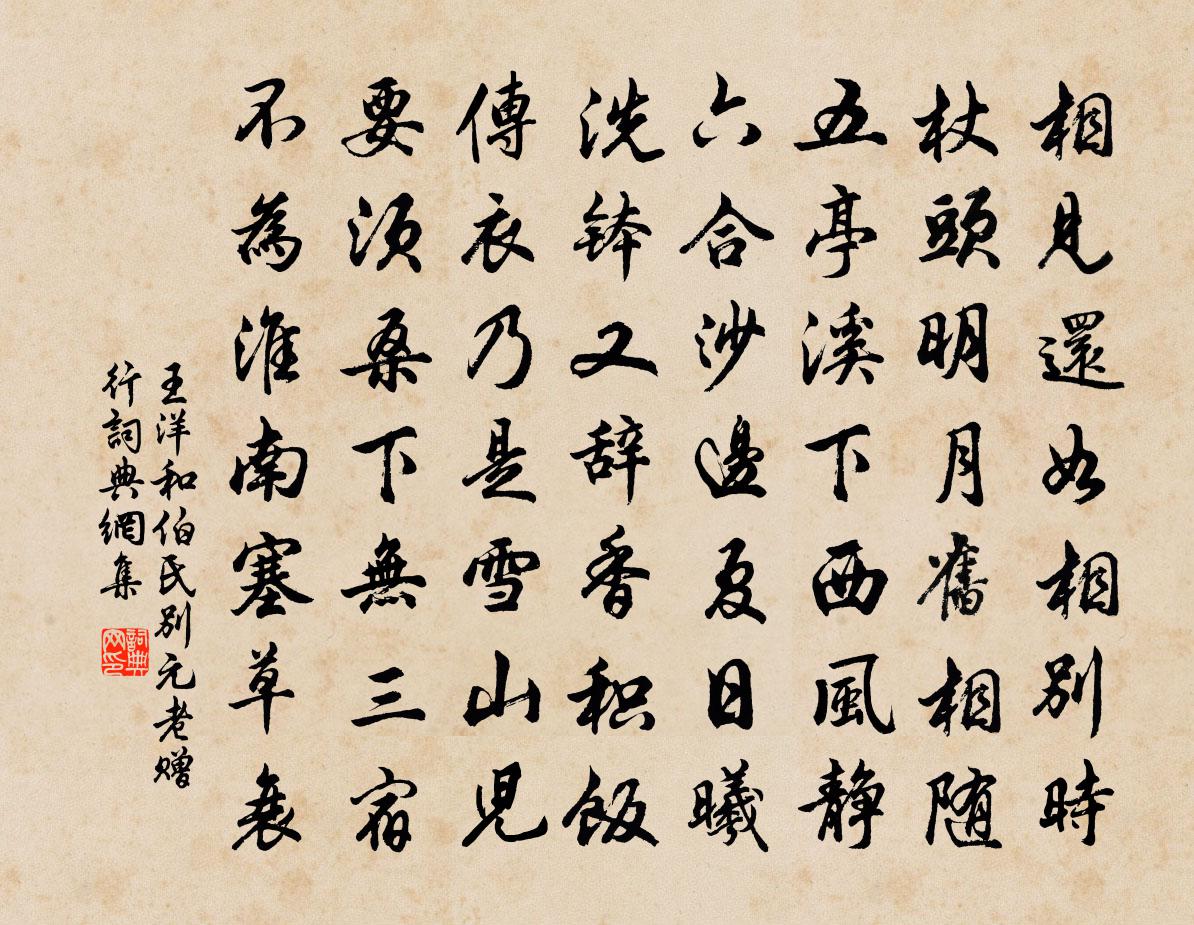 相見還如相別時
杖頭明月舊相随
五亭溪下西風静
六合沙邊夏日曦
洗鉢又辞香积飯
傳衣乃是雪山児
要須桑下無三宿
不為淮南塞草衰
王洋和伯氏別元老赠
行詞典網集
詞典
网印